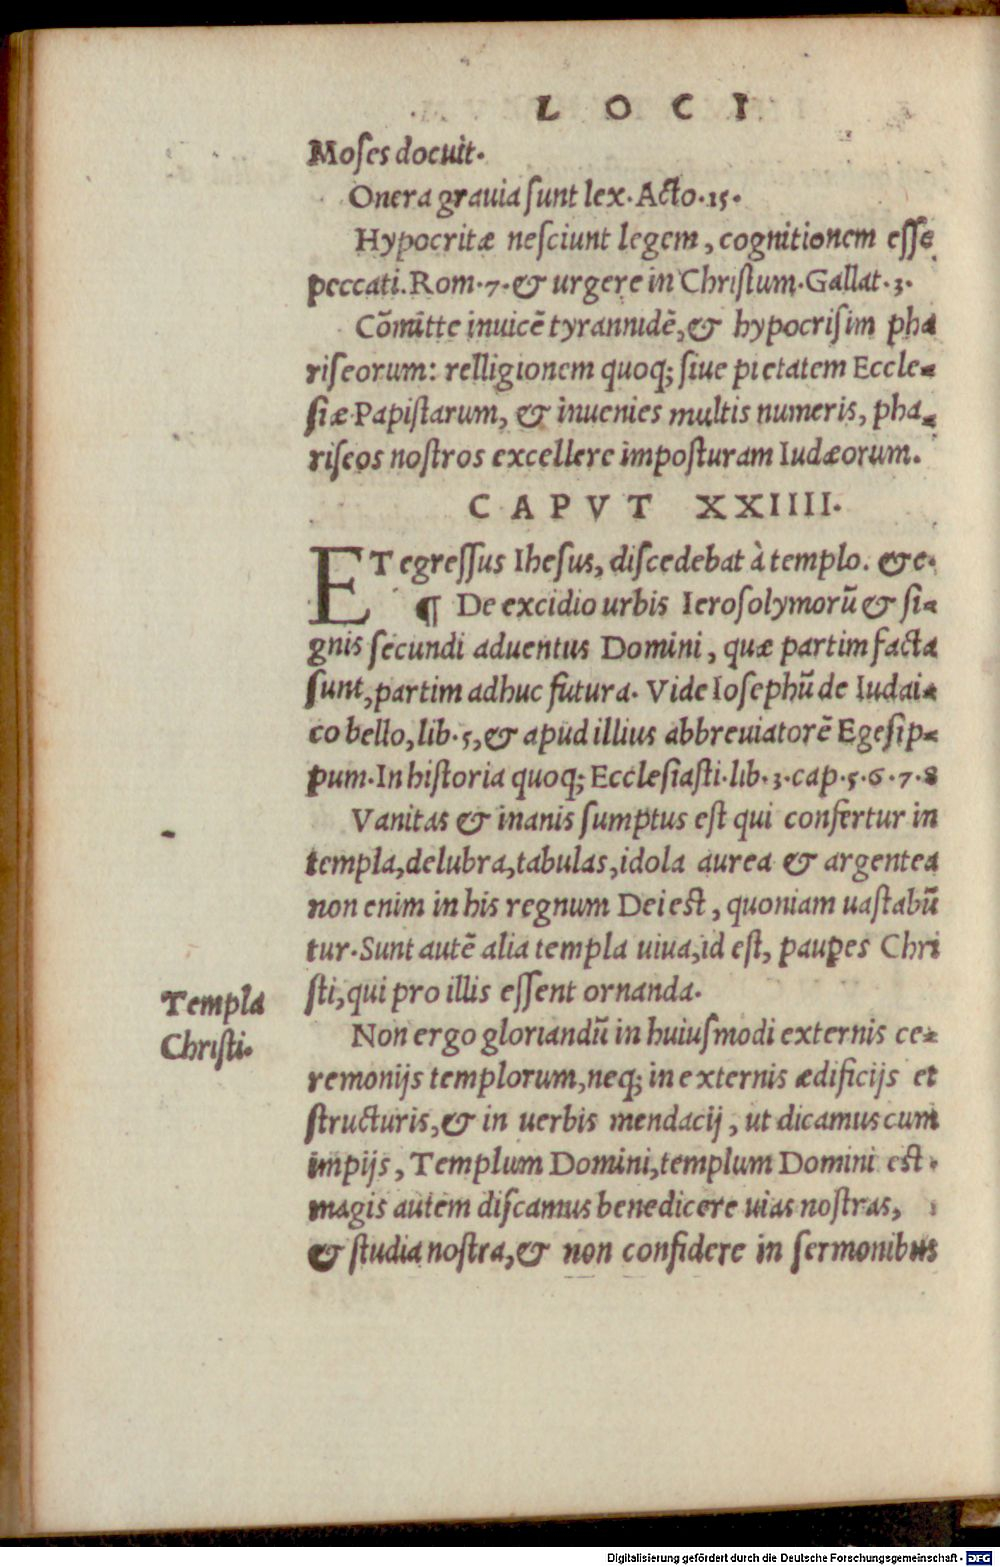 LOCI
Moses docuit.
Onera grauia sunt lex. Acto. 15.
Hypocritæ nesciunt legem, cognitionem esse
peccati. Rom. 7. & urgere in Christum. Gallat. 3.
Cõmitte inuicẽ tyrannidẽ, & hypocrisim pha
riseorum: relligionem quoq; siue pietatem Eccle-
siæ Papistarum, & inuenies multis numeris, pha-
riseos nostros excellere imposturam Iudæorum.
CAPVT XXIIII.
ET egressus Ihesus, discedebat à templo. &c.
¶ De excidio urbis Ierosolymorũ & si-
gnis secundi aduentus Domini, quæ partim facta
sunt, partim adhuc futura. Vide Iosephũ de Iudai-
co bello, lib. 5, & apud illius abbreuiatorẽ Egesip-
pum. In historia quoq; Ecclesiasti. lib. 3. cap. 5. 6. 7. 8
Vanitas & inanis sumptus est qui confertur in
templa, delubra, tabulas, idola aurea & argentea
non enim in his regnum Dei est, quoniam uastabũ
tur. Sunt autẽ alia templa uiua, id est, pauꝑes Chri
sti, qui pro illis essent ornanda.
Templa
Christi.
Non ergo gloriandũ in huiusmodi externis ce-
remonijs templorum, neq; in externis ædificijs et
structuris, & in uerbis mendacij, ut dicamus cum
impijs, Templum Domini, templum Domini est.
magis autem discamus benedicere uias nostras,
& studia nostra, & non confidere in sermonibus
Digitalisierung gefördert durch die Deutsche Forschungsgemeinschaft - DFG